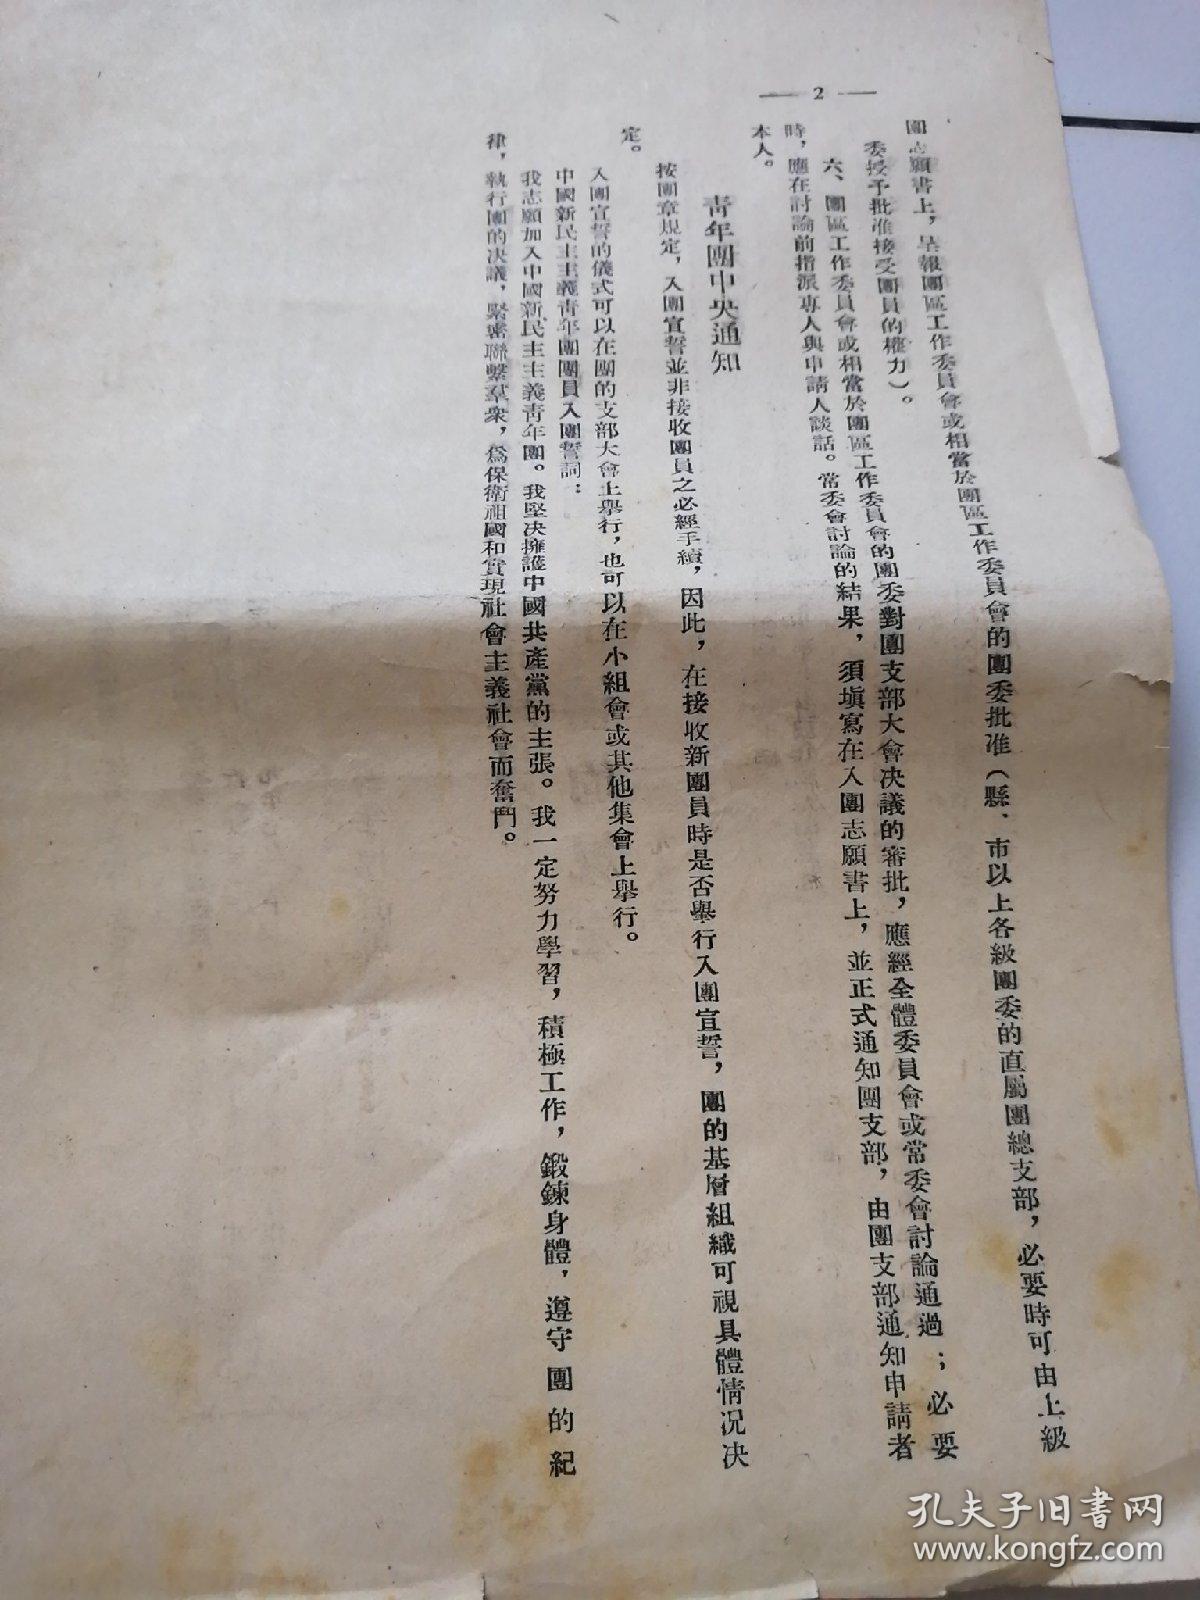 — 2 —
團志願書上，呈報團區工作委員會或相當於團區工作委員會的團委批准（縣、市以上各級團委的直屬團總支部，必要時可由上級
委授予批准接受團員的權力）。
六、團區工作委員會或相當於團區工作委員會的團委對團支部大會決議的審批，應經全體委員會或常委會討論通過；必要
時，應在討論前指派專人與申請人談話。常委會討論的結果，須填寫在入團志願書上，並正式通知團支部，由團支部通知申請者
本人。
青年團中央通知
按團章規定，入團宣誓並非接收團員之必經手續，因此，在接收新團員時是否舉行入團宣誓，團的基層組織可視具體情況决
定。
入團宣誓的儀式可以在團的支部大會上舉行，也可以在小組會或其他集會上舉行。
中國新民主主義青年團團員入團誓詞：
我志願加入中國新民主主義青年團。我堅决擁護中國共產黨的主張。我一定努力學習，積極工作，鍛鍊身體，遵守團的紀
律，執行團的决議，緊密聯繫羣衆，爲保衛祖國和實現社會主義社會而奮鬥。
孔夫子旧书网
www.kongfz.com